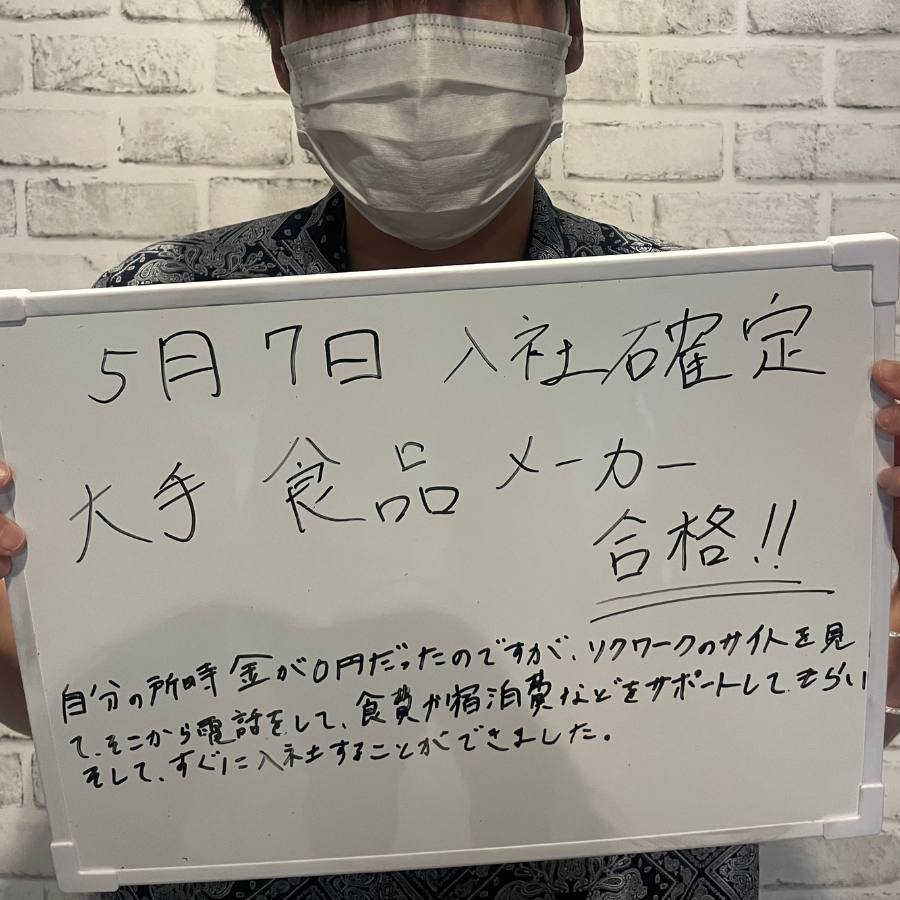 5月7日 入社確定
大手 食品メーカー
合格!!
自分の所時金が0円だったのですが、リクワークのサイトを見
て、そこから電話をして、食費や宿泊費などをサポートしてもらい
そして、すぐに入社することができました。